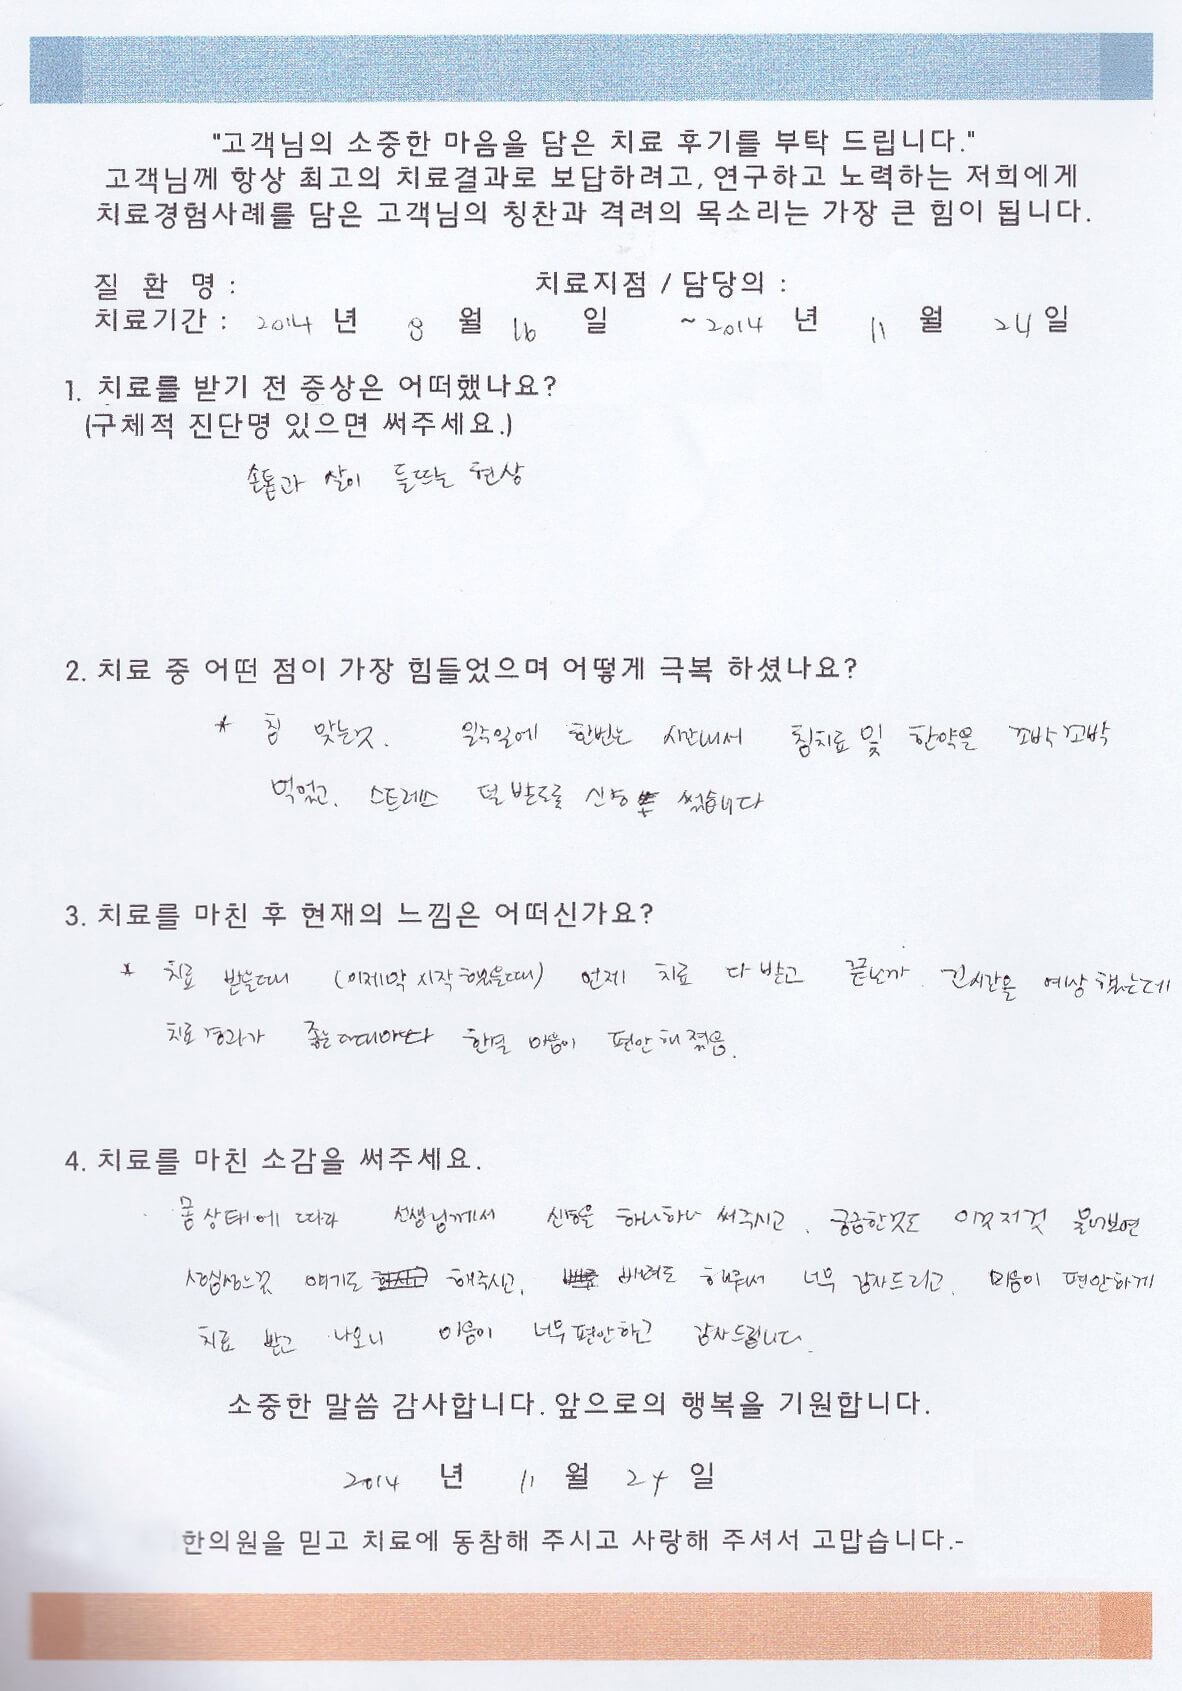 "고객님의 소중한 마음을 담은 치료 후기를 부탁 드립니다."
고객님께 항상 최고의 치료결과로 보답하려고, 연구하고 노력하는 저희에게
치료경험사례를 담은 고객님의 칭찬과 격려의 목소리는 가장 큰 힘이 됩니다.
질 환 명 : 치료지점 / 담당의 :
치료기간 : 2014 년 8 월 16 일 ~2014 년 11 월 24 일
1. 치료를 받기 전 증상은 어떠했나요?
(구체적 진단명 있으면 써주세요.)
손톱과 살이 들뜨는 현상
2. 치료 중 어떤 점이 가장 힘들었으며 어떻게 극복 하셨나요?
* 침 맞는것. 일주일에 한번는 시간내서 침치료 및 한약을 꼬박꼬박
먹었고. 스트레스 덜 받도록 신경 썼습니다
3. 치료를 마친 후 현재의 느낌은 어떠신가요?
* 치료 받을때 (이제막 시작했을때) 언제 치료 다 받고 끝난까 긴시간을 예상했는데
치료경과가 좋는 한결 마음이 편안해졌음.
4. 치료를 마친 소감을 써주세요.
몸상태에 따라 선생님께서 신경을 하나하나 써주시고. 궁금한것도 이것저것 물어보면
얘기도 해주시고, 배려도 해줘서 너무 감사드리고. 마음이 편안하게
치료 받고 나오니 마음이 너무편안하고 감사드립니다.
소중한 말씀 감사합니다. 앞으로의 행복을 기원합니다.
2014 년 11 월 24 일
한의원을 믿고 치료에 동참해 주시고 사랑해 주셔서 고맙습니다.-